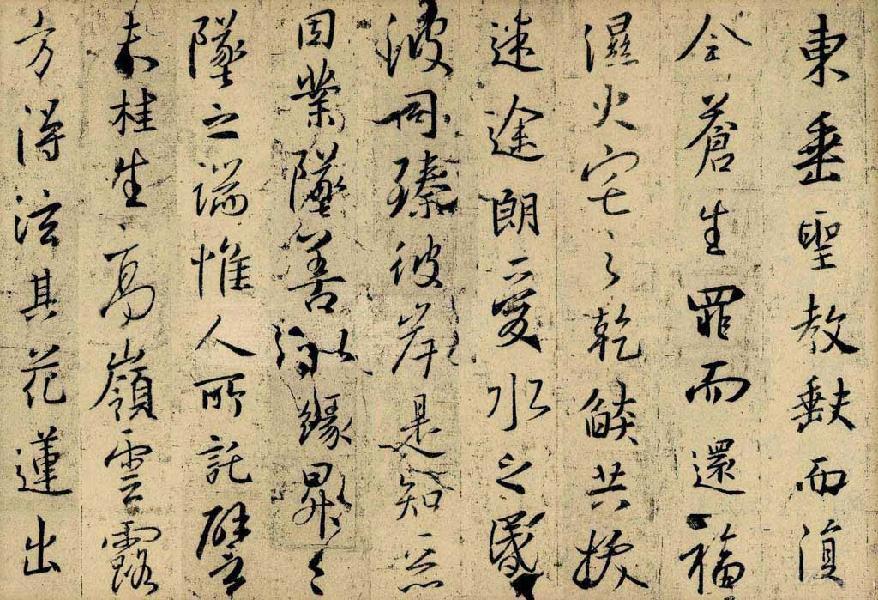 東垂聖教缺而復
全蒼生罪而還福
濕火宅之乾燄共拔
迷途朗愛水之昏
波同臻彼岸是知惡
因業墜善以緣昇〻
墜之端惟人所託譬
夫桂生高嶺雲露
方得泫其花蓮出